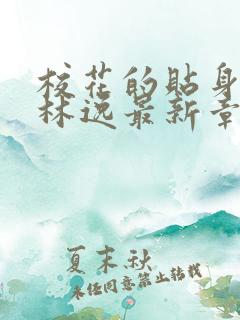 校花的贴身
林逸最新章
夏末秋
未经同意禁止转载